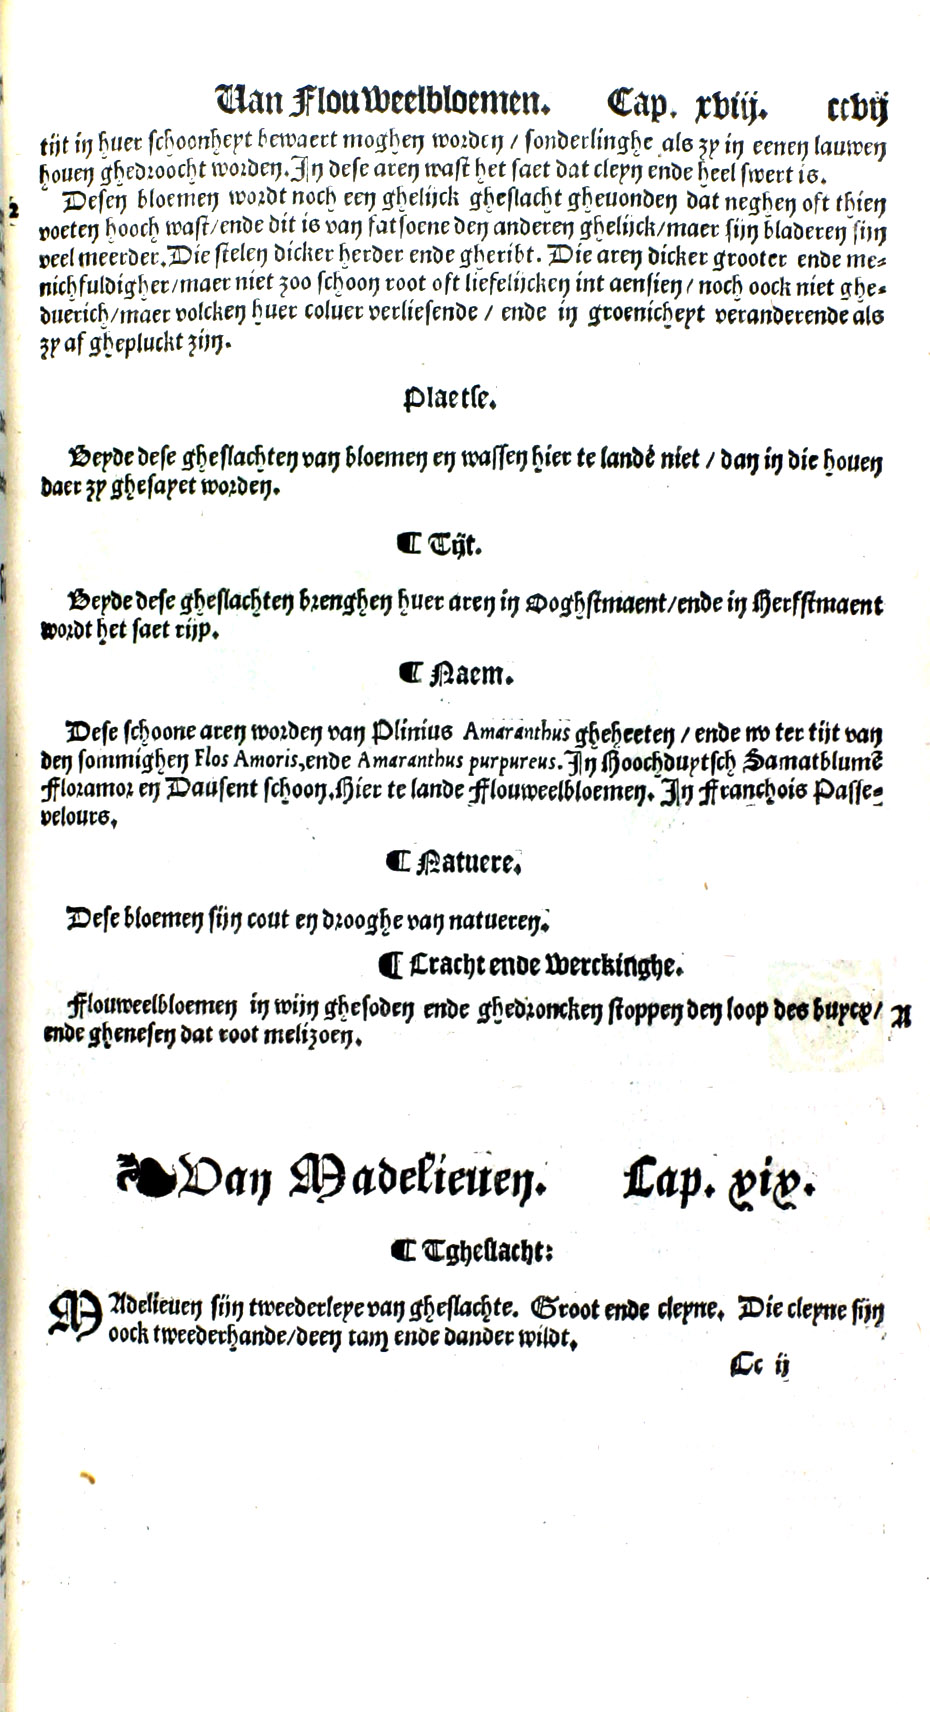 Van Flouweelbloemen. Cap. xviij. ccvij
tijt in huer schoonheyt bewaert moghen worden / sonderlinghe als zy in eenen lauwen
houen ghedroocht worden. In dese aren wast het saet dat cleyn ende heel swert is.
2 Desen bloemen wordt noch een ghelijck gheslacht gheuonden dat neghen oft thien
voeten hooch wast/ende dit is van fatsoene den anderen ghelijck/maer sijn bladeren sijn
veel meerder. Die stelen dicker herder ende gheribt. Die aren dicker grooter ende me-
nichfuldigher/maer niet zoo schoon root oft liefelijcken int aensien/ noch oock niet ghe-
duerich/maer volcken huer coluer verliesende / ende in groenicheyt veranderende als
zy af ghepluckt zijn.
Plaetse.
Beyde dese gheslachten van bloemen en wassen hier te landē niet / dan in die houen
daer zy ghesayet worden.
¶ Tijt.
Beyde dese gheslachten brenghen huer aren in Ooghstmaent/ende in Herfstmaent
wordt het saet rijp.
¶ Naem.
Dese schoone aren worden van Plinius Amaranthus gheheeten / ende nv ter tijt van
den sommighen Flos Amoris, ende Amaranthus purpureus. In Hoochduytsch Samatblumē
Floramor en Dausent schoon. Hier te lande Flouweelbloemen. In Franchois Passe-
velours.
¶ Natuere.
Dese bloemen sijn cout en drooghe van natueren.
¶ Cracht ende Werckinghe.
Flouweelbloemen in wijn ghesoden ende ghedroncken stoppen den loop des buycx/ A
ende ghenesen dat root melizoen.
❧ Van Madelieuen. Cap. xix.
¶ Tgheslacht:
MAdelieuen sijn tweederleye van gheslachte. Groot ende cleyne. Die cleyne sijn
oock tweederhande/deen tam ende dander wildt.
Cc ij